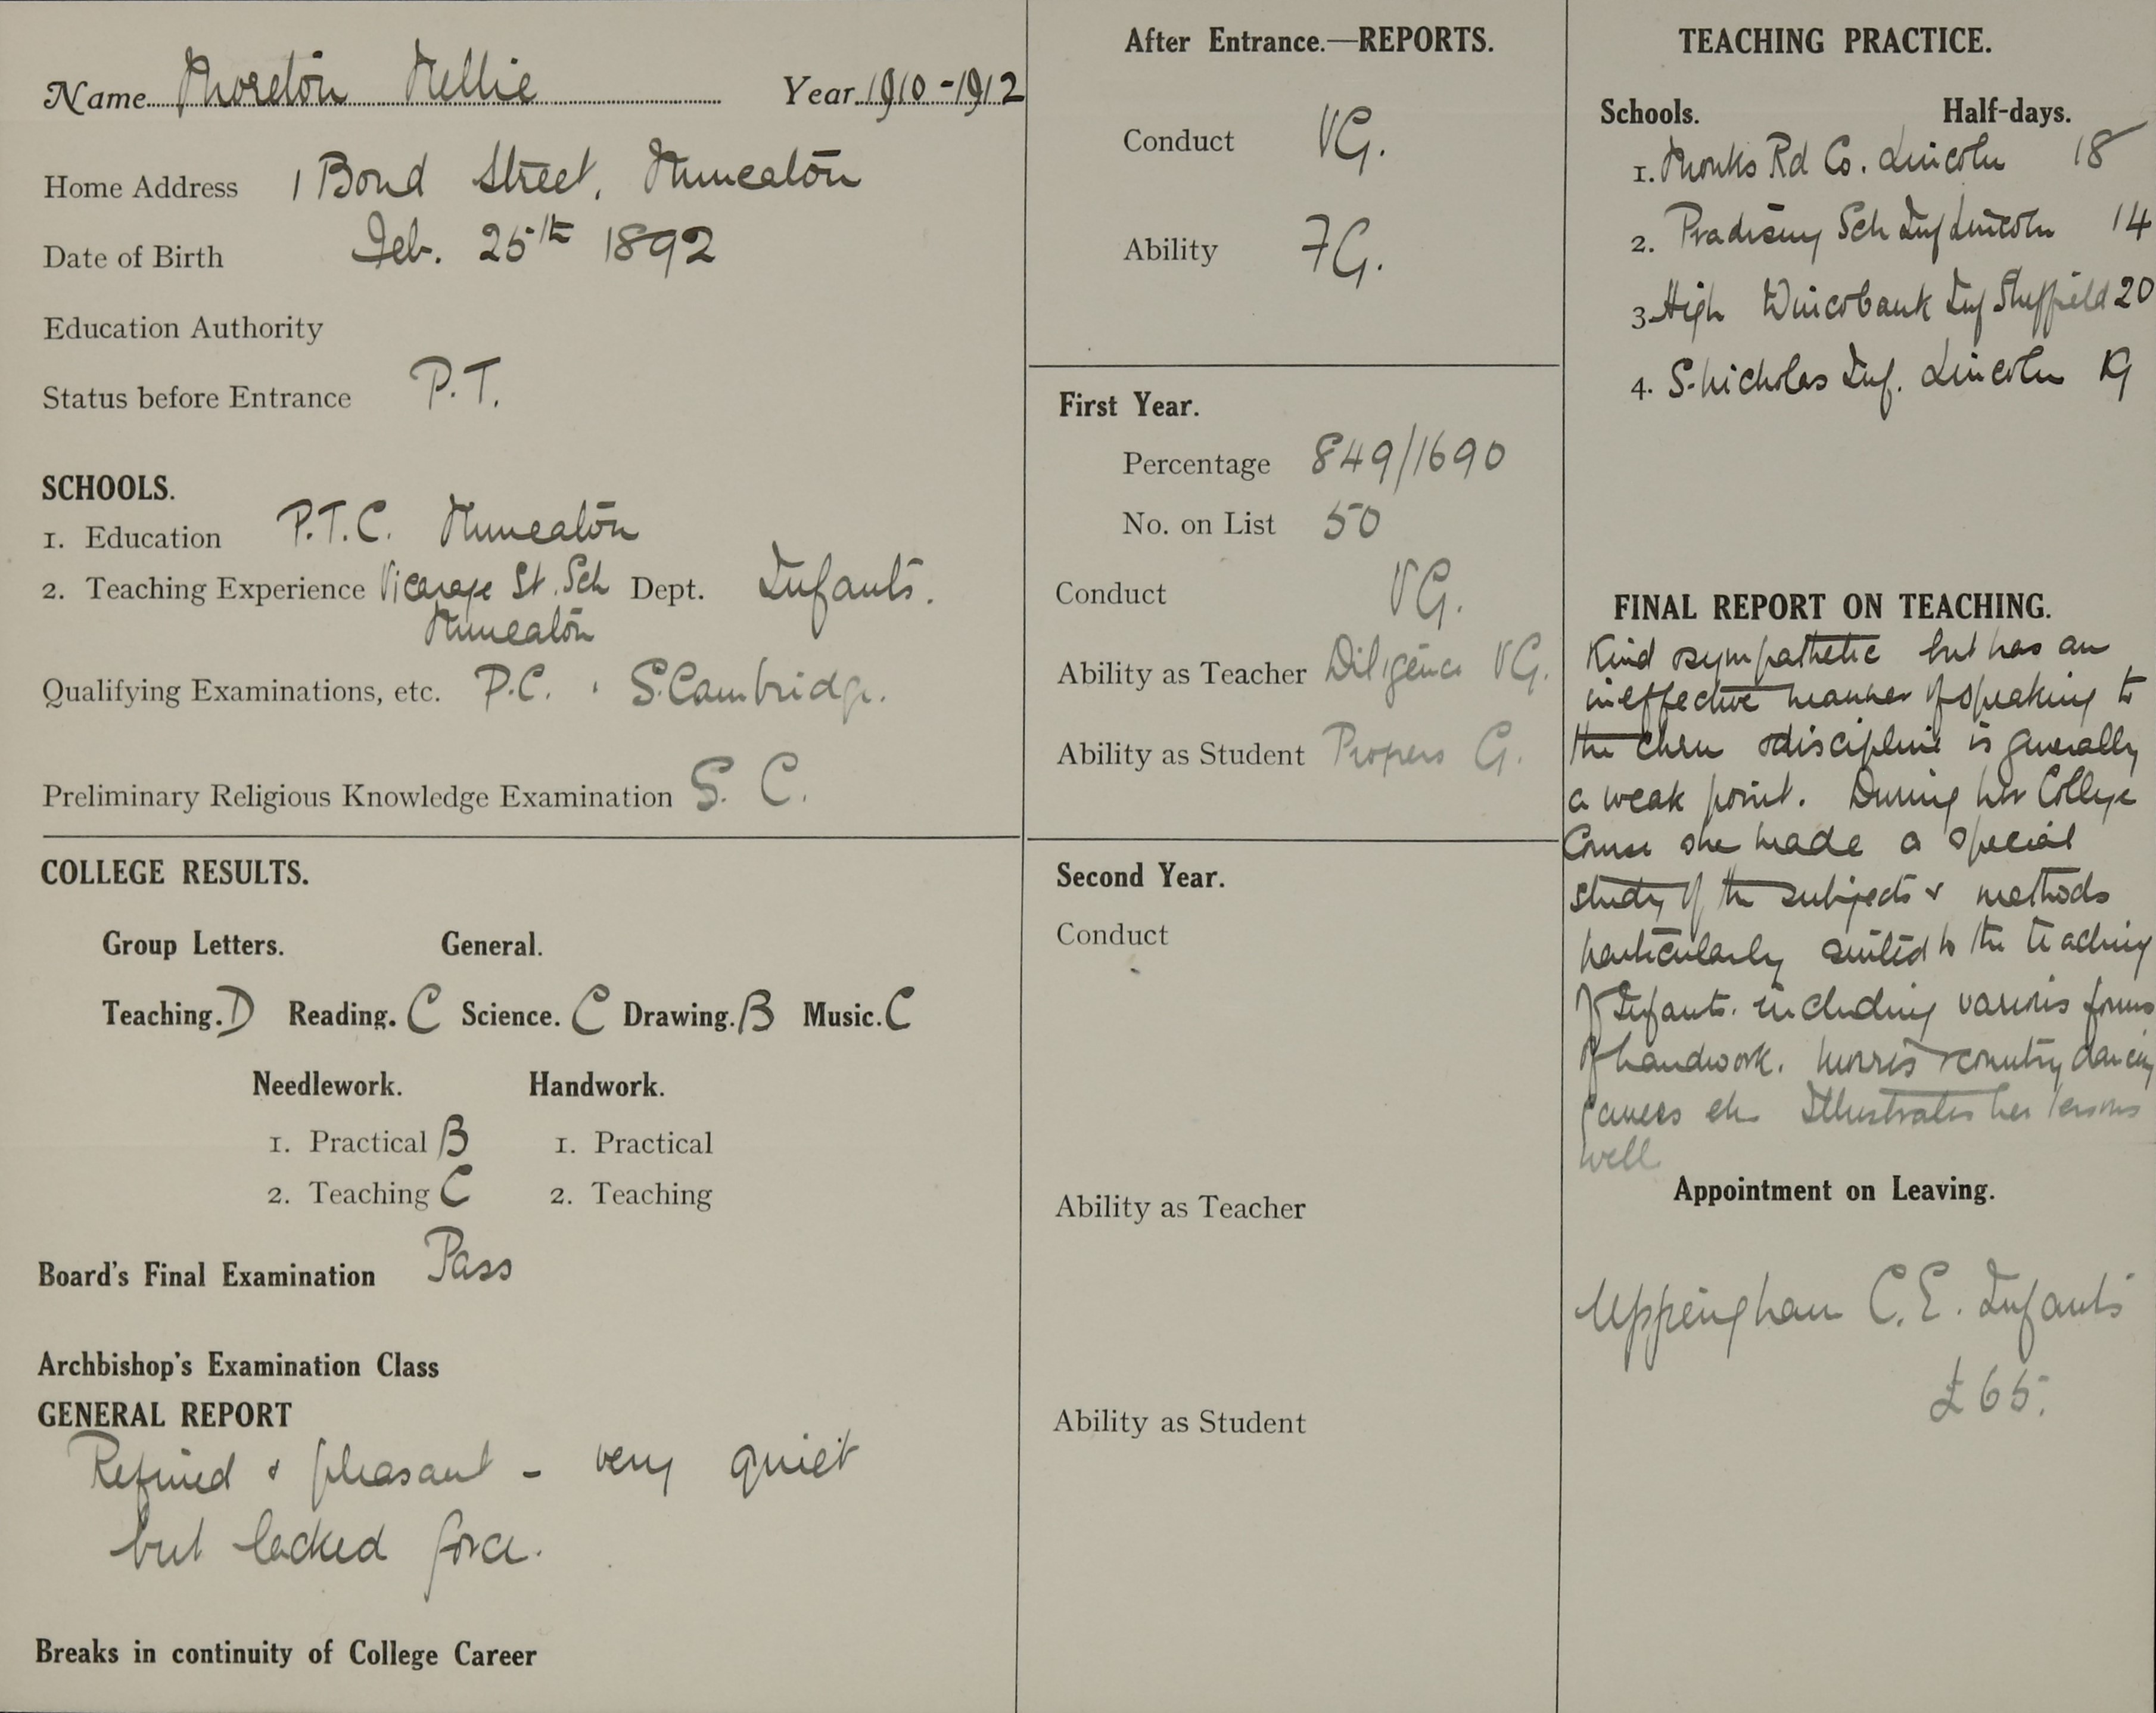 Name Moreton Nellie Year 1910-1912
Home Address 1 Bond Street, Nuneaton
Date of Birth Feb. 25th 1892
Education Authority
Status before Entrance P.T.
SCHOOLS.
1. Education P.T.C. Nuneaton
2. Teaching Experience Vicarage St. Sch Dept. Infants.
Nuneaton
Qualifying Examinations, etc. P.C. S.Cambridge.
Preliminary Religious Knowledge Examination S. C.
COLLEGE RESULTS.
Group Letters. General.
Teaching. D Reading. C Science. C Drawing. B Music. C
Needlework. Handwork.
1. Practical B 1. Practical
2. Teaching C 2. Teaching
Board's Final Examination Pass
Archbishop's Examination Class
GENERAL REPORT
Refined & pleasant - very quiet
but lacked force.
Breaks in continuity of College Career
After Entrance.—REPORTS.
Conduct VG.
Ability FG.
First Year.
Percentage 849/1690
No. on List 50
Conduct VG.
Ability as Teacher Diligence VG.
Ability as Student Progress G.
Second Year.
Conduct
Ability as Teacher
Ability as Student
TEACHING PRACTICE.
Schools. Half-days.
1. Monks Rd Co. Lincoln 18
2. Practising Sch Inf Lincoln 14
3. High Wincobank Inf Sheffield 20
4. S. Nicholas Inf. Lincoln 19
FINAL REPORT ON TEACHING.
Kind & sympathetic but has an
ineffective manner of speaking to
the chn & discipline is generally
a weak point. During her College
Course she made a special
study of the subjects & methods
particularly suited to the teaching
of Infants. including various forms
of handwork. morris & country dancing
games etc Illustrates her lessons
well
Appointment on Leaving.
Uppingham C.E. Infants
£65.